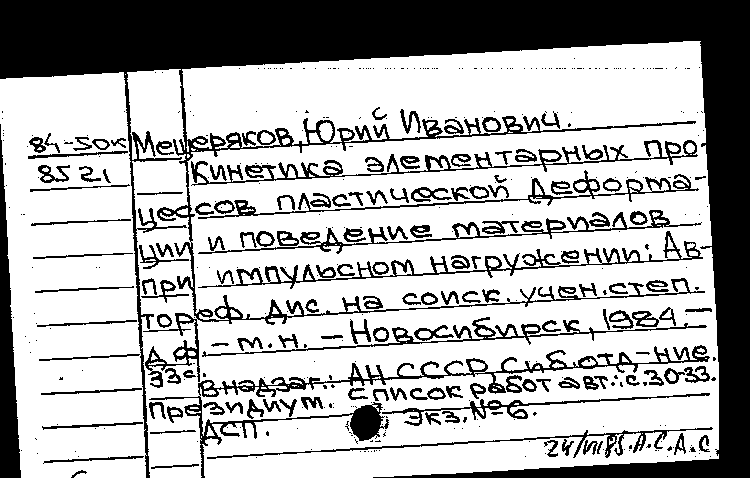 84-50к Мещеряков, Юрий Иванович.
8521 Кинетика элементарных про-
цессов пластической деформа-
ции и поведение материалов
при импульсном нагружении: Ав-
тореф. дис. на соиск. учен. степ.
д.ф.-т.н. - Новосибирск, 1984. -
33с. В надзаг.: АН СССР, Сиб. отд-ние.
Президиум. Список работ авт.: с. 30-33.
ДСП. Экз. №6.
А.С.А.С.